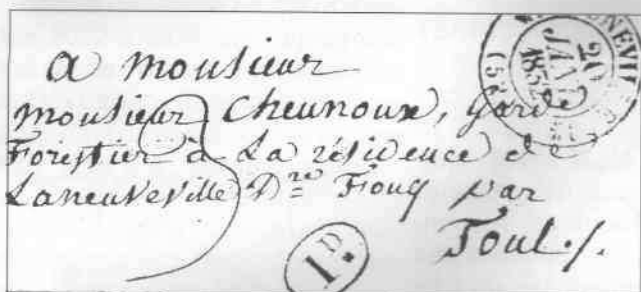 a monsieur
monsieur Cheunoux, Garde
Forestier à La résidence de
Laneuveville Dre Foug par
Toul./.
20
JANV
1852
(52)
1D